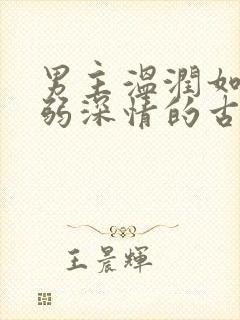 男主温潤如
弱深情的古
王晨輝